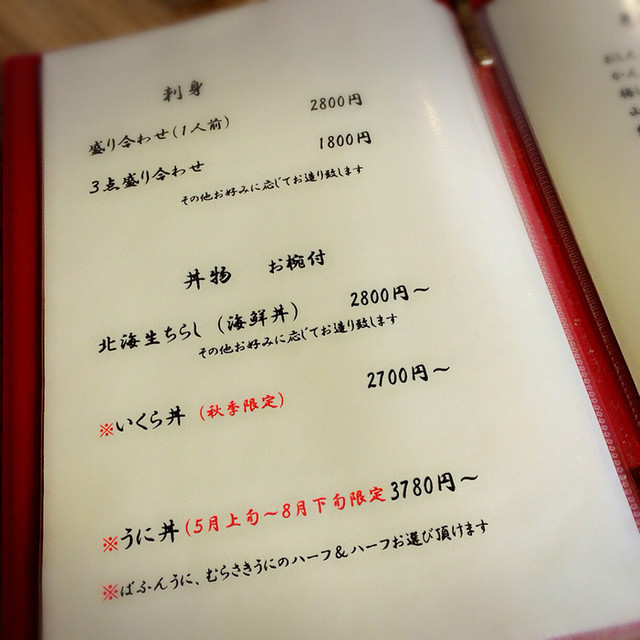 刺身
盛り合わせ(1人前) 2800円
3点盛り合わせ 1800円
その他お好みに応じてお造り致します
丼物 お椀付
北海生ちらし(海鮮丼) 2800円～
その他お好みに応じてお造り致します
※いくら丼 (秋季限定) 2700円～
※うに丼(5月上旬～8月下旬限定 3780円～
※ばふんうに、むらさきうにのハーフ&ハーフお選び頂けます